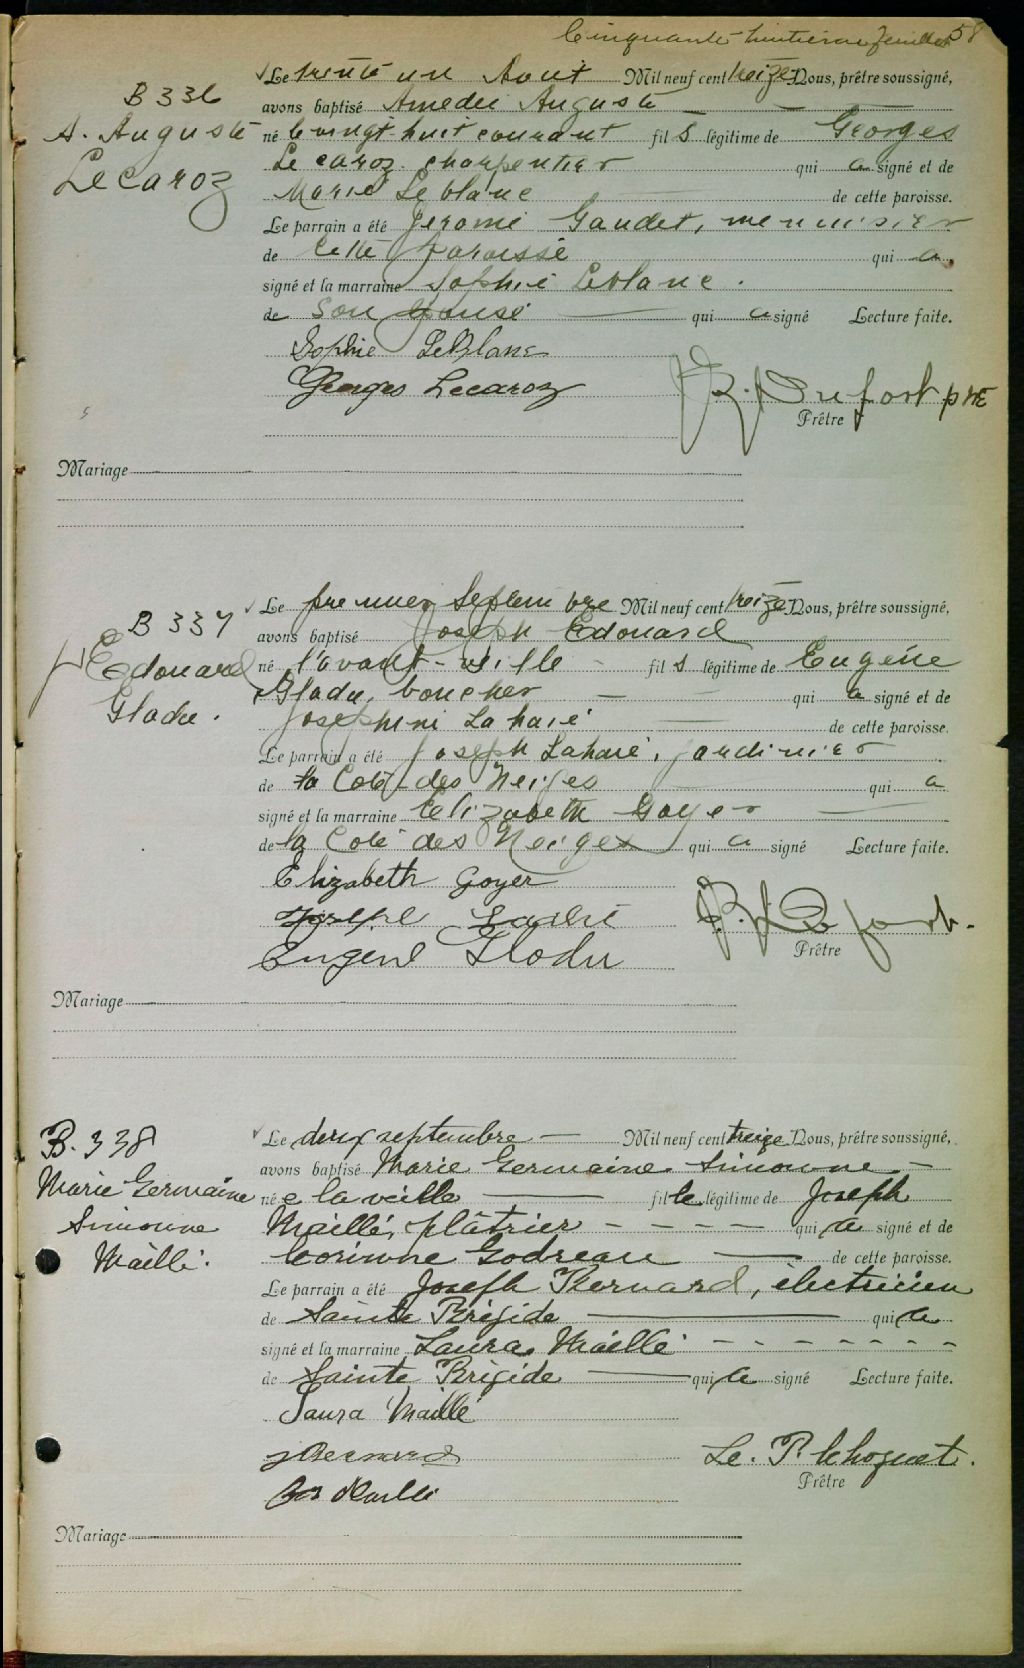 Cinquante huitième feuillet 58
B 336
A. Auguste
Lecaroz
Le trente un Aout Mil neuf cent treize Nous, prêtre soussigné,
avons baptisé Amedée Auguste
né le vingt huit courant fil s légitime de Georges
Lecaroz charpentier qui a signé et de
Marie Leblanc de cette paroisse.
Le parrain a été Jerome Gaudet, menuisier
de cette paroisse qui a
signé et la marraine Sophie Leblanc.
de son épouse qui a signé Lecture faite.
Sophie LeBlanc
Georges Lecaroz
Dufort ptre
Prêtre
Mariage
B 337
J Edouard
Gladu.
Le premier Septembre Mil neuf cent treize Nous, prêtre soussigné,
avons baptisé Joseph Edouard
né l'avant-veille fil s légitime de Eugène
Gladu, boucher qui a signé et de
Josephine Lahaie de cette paroisse.
Le parrain a été Joseph Lahaie, jardinier
de la Cote des Neiges qui a
signé et la marraine Elizabeth Goyer
de la Cote des Neiges qui a signé Lecture faite.
Elizabeth Goyer
Joseph
Eugene Gladu
Prêtre
Mariage
B. 338
Marie Germaine
Simonne
Maillé.
Le deux septembre Mil neuf cent treize Nous, prêtre soussigné,
avons baptisé Marie Germaine Simonne
né e la veille fil le légitime de Joseph
Maillé, plâtrier qui a signé et de
Corinne Godreau de cette paroisse.
Le parrain a été Joseph Bernard, électricien
de Sainte Brigide qui a
signé et la marraine Laura Maillé
de Sainte Brigide qui a signé Lecture faite.
Laura Maillé
J Bernard
Jos Maillé
Le. P. Choquet.
Prêtre
Mariage